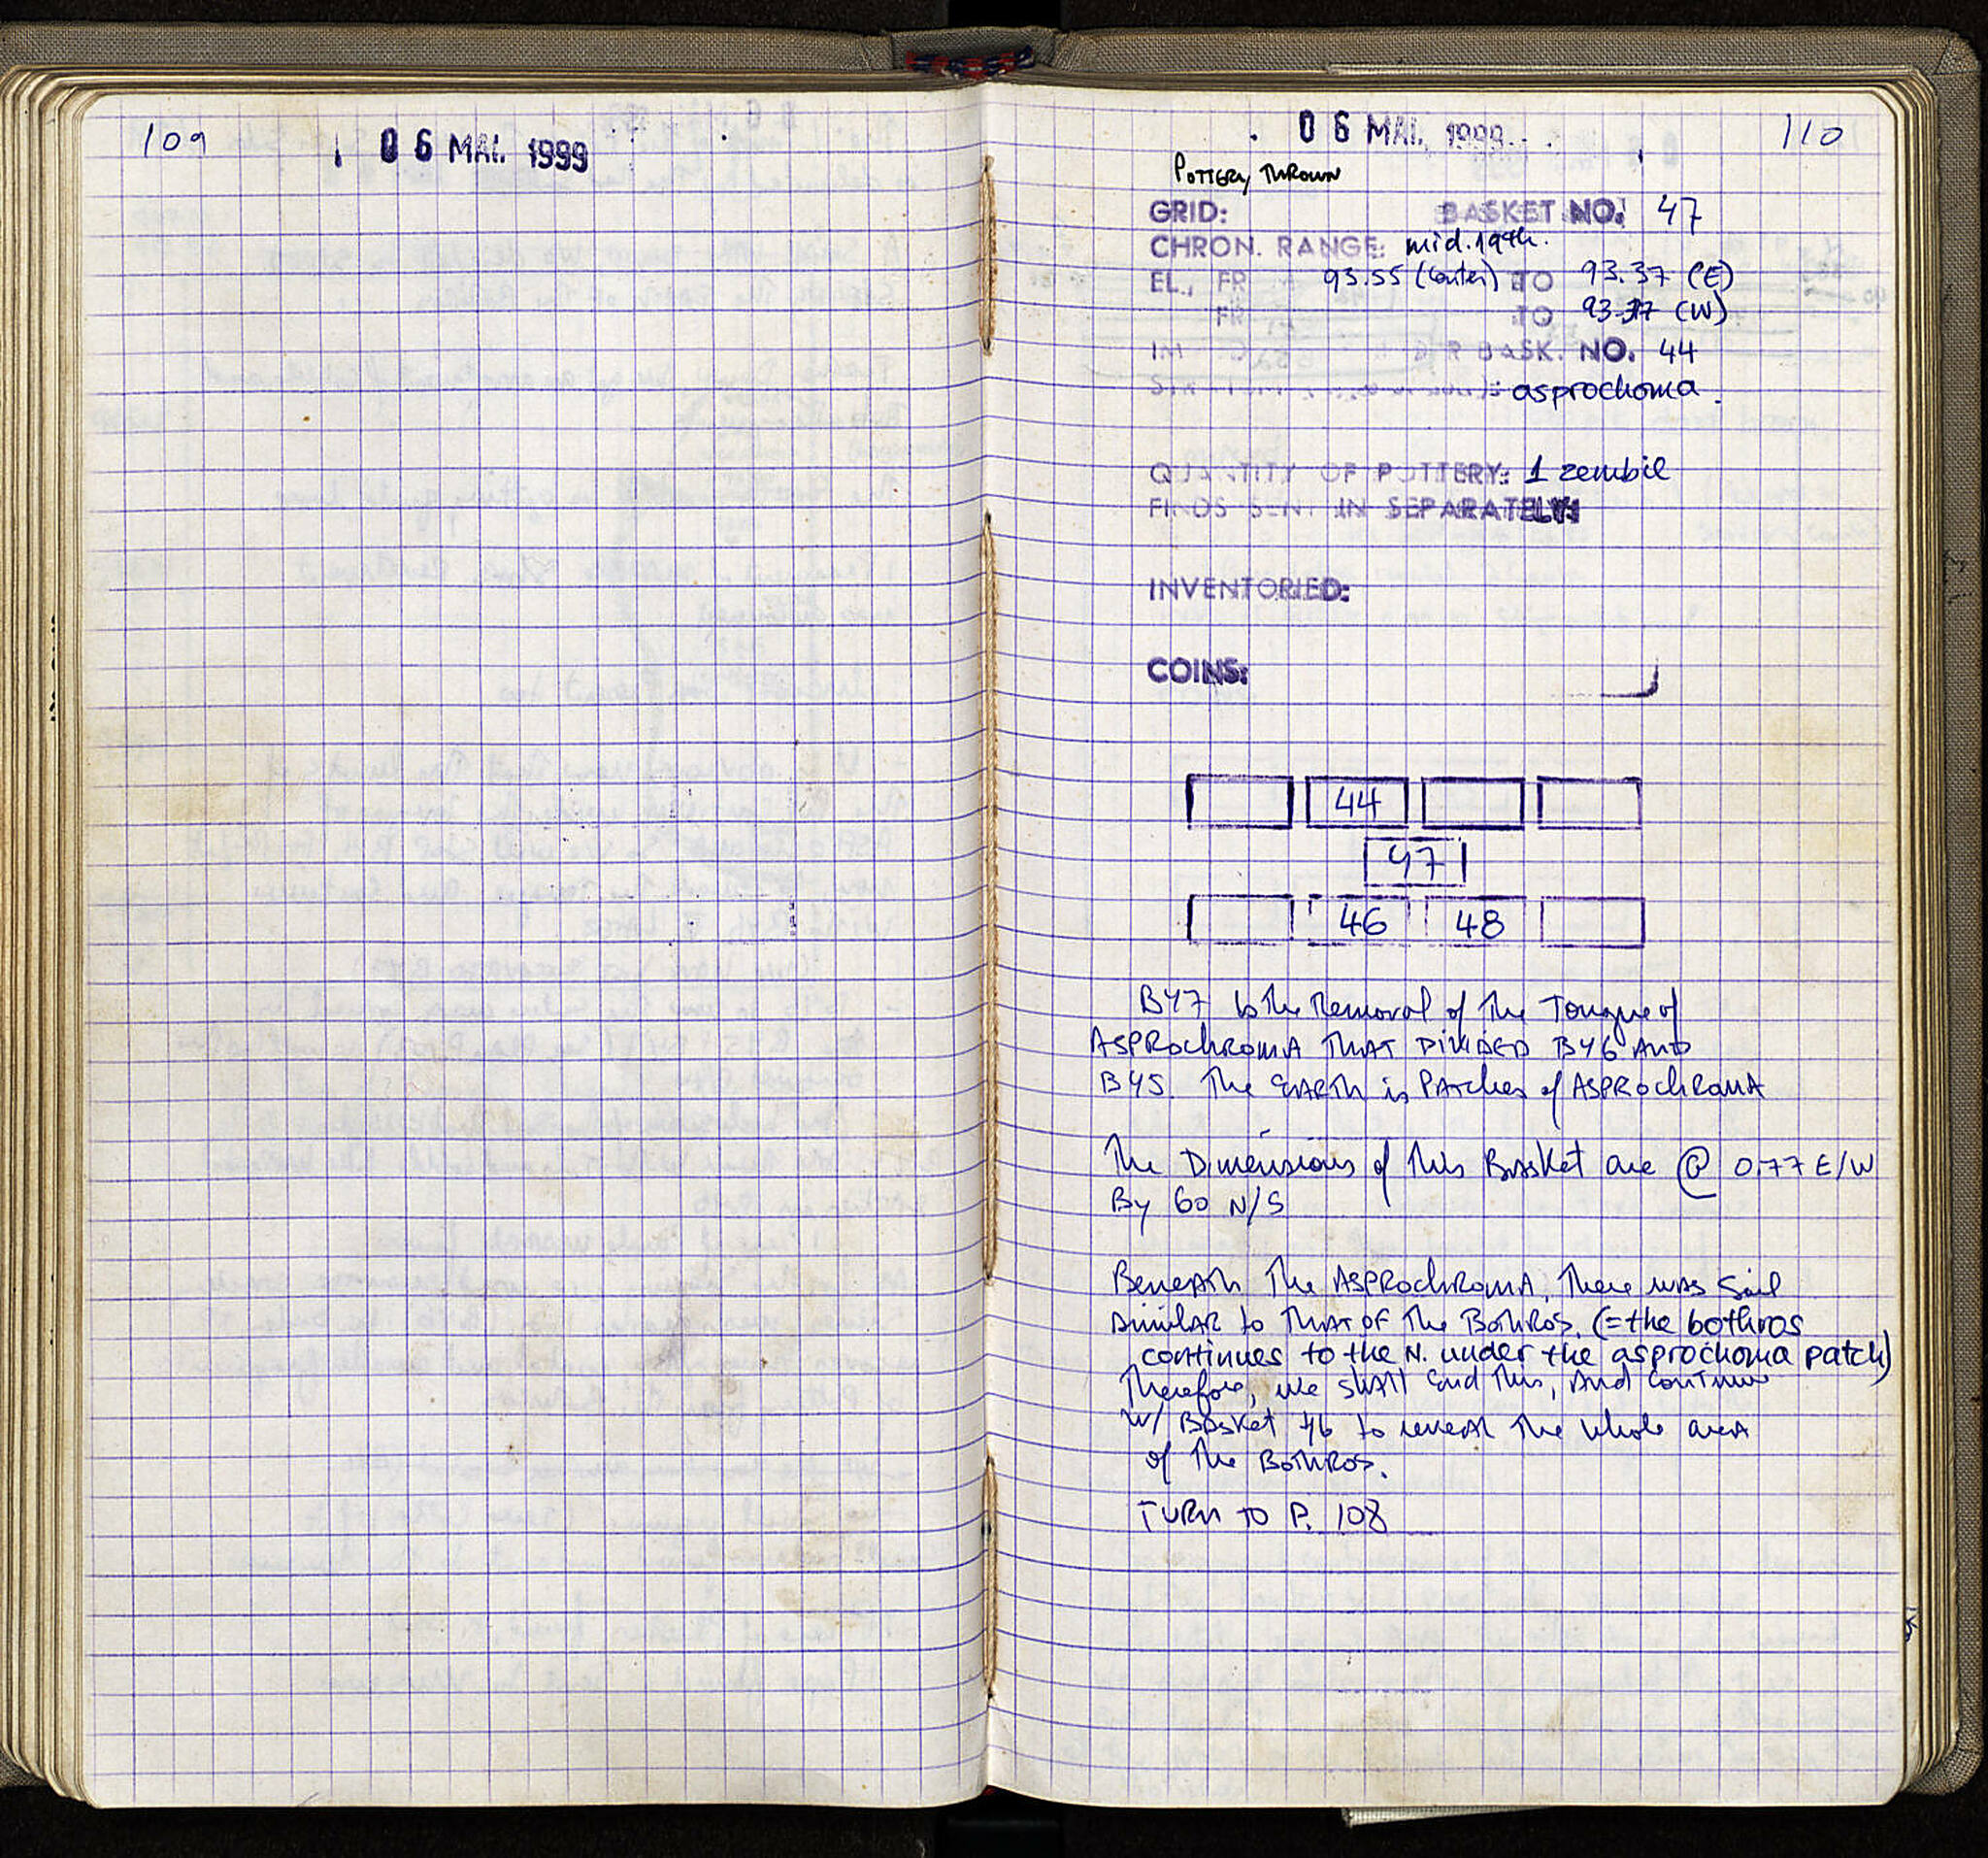 109
06 MAI. 1999
06 MAI. 1999
110
POTTERY THROWN
GRID: BASKET NO: 47
CHRON. RANGE: mid. 19th.
EL., FR 93.55 (Center) TO 93.37 (E)
FR TO 93.37 (W)
IM BASK. NO. 44
asprochoma.
QUANTITY OF POTTERY: 1 zembil
FINDS SENT IN SEPARATELY:
INVENTORIED:
COINS:
44
47
46 48
B47 is the Removal of the Tongue of
ASPROchROMA THAT DIVIDED B46 AND
B45. The EARTH is PATches of ASPROchROMA
The Dimensions of this Basket are @ 0.77 E/W
By 60 N/S
Beneath The ASPROchROMA, there was Soil
similar to THAT OF The BothRos. (=the bothros
continues to the N. under the asprochoma patch)
Therefore, we shall end this, and continue
w/ Basket 46 to reveal the whole area
of the BothRos.
TURN TO P. 108